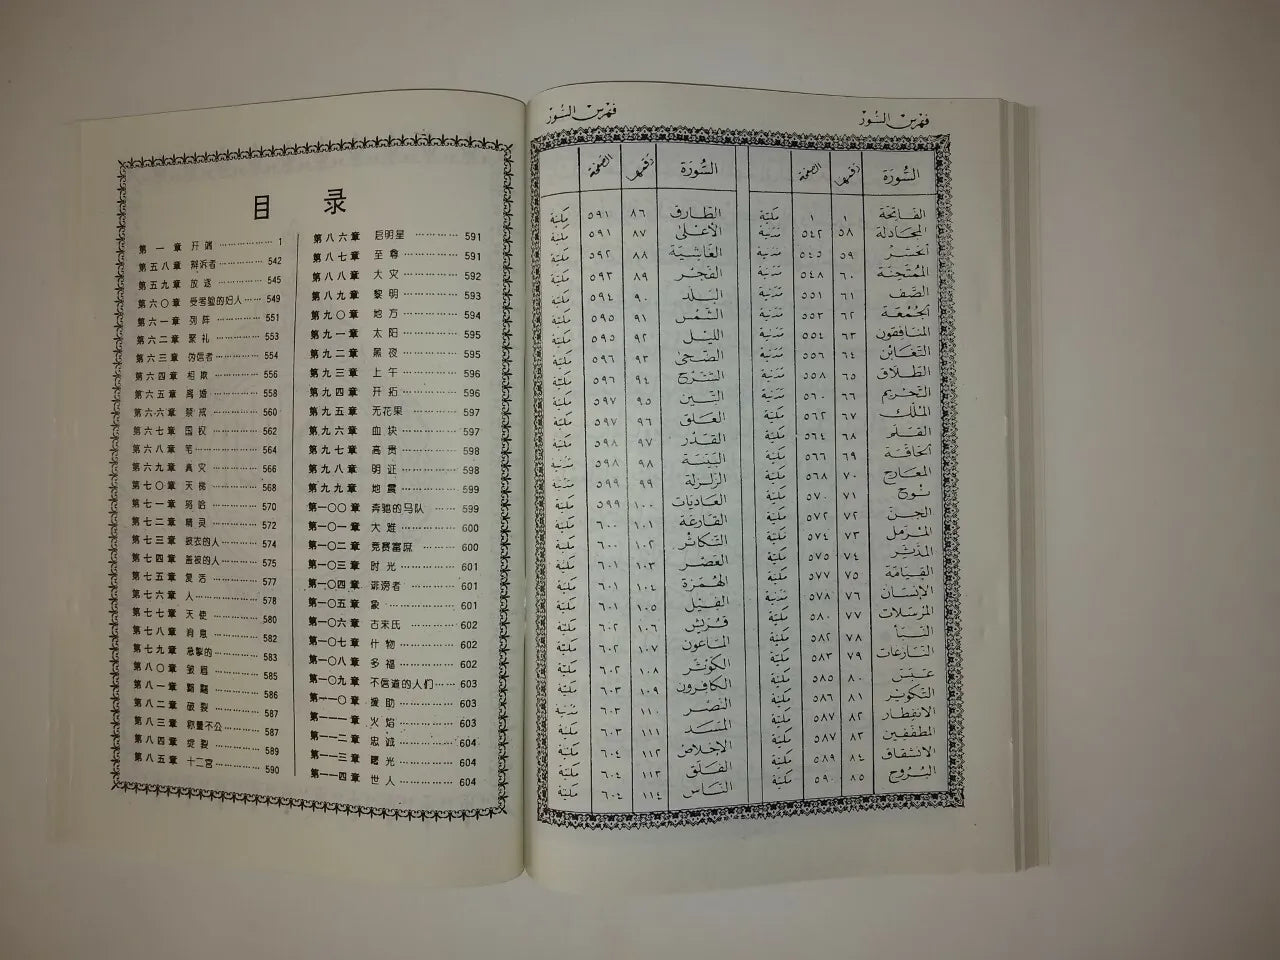 目 录
第一章 开端 ……………… 1
第五八章 辩诉者 ………… 542
第五九章 放逐 …………… 545
第六〇章 受考验的妇人 …… 549
第六一章 列阵 …………… 551
第六二章 聚礼 …………… 553
第六三章 伪信者 ………… 554
第六四章 相欺 …………… 556
第六五章 离婚 …………… 558
第六六章 禁戒 …………… 560
第六七章 国权 …………… 562
第六八章 笔 ……………… 564
第六九章 真灾 …………… 566
第七〇章 天梯 …………… 568
第七一章 努哈 …………… 570
第七二章 精灵 …………… 572
第七三章 披衣的人 ……… 574
第七四章 盖被的人 ……… 575
第七五章 复活 …………… 577
第七六章 人 ……………… 578
第七七章 天使 …………… 580
第七八章 消息 …………… 582
第七九章 急掣的 ………… 583
第八〇章 皱眉 …………… 585
第八一章 黯黯 …………… 586
第八二章 破裂 …………… 587
第八三章 称量不公 ……… 587
第八四章 绽裂 …………… 589
第八五章 十二宫 ………… 590
第八六章 启明星 ………… 591
第八七章 至尊 …………… 591
第八八章 大灾 …………… 592
第八九章 黎明 …………… 593
第九〇章 地方 …………… 594
第九一章 太阳 …………… 595
第九二章 黑夜 …………… 595
第九三章 上午 …………… 596
第九四章 开拓 …………… 596
第九五章 无花果 ………… 597
第九六章 血块 …………… 597
第九七章 高贵 …………… 598
第九八章 明证 …………… 598
第九九章 地震 …………… 599
第一〇〇章 奔驰的马队 …… 599
第一〇一章 大难 ………… 600
第一〇二章 竞赛富庶 …… 600
第一〇三章 时光 ………… 601
第一〇四章 诽谤者 ……… 601
第一〇五章 象 …………… 601
第一〇六章 古来氏 ……… 602
第一〇七章 什物 ………… 602
第一〇八章 多福 ………… 602
第一〇九章 不信道的人们 … 603
第一一〇章 援助 ………… 603
第一一一章 火焰 ………… 603
第一一二章 忠诚 ………… 604
第一一三章 曙光 ………… 604
第一一四章 世人 ………… 604
فهرس السُّوَر
السُّورَة رقمها الصفحة
الفَاتِحَة ١ ١ مكيّة
المجَادلة ٥٨ ٥٤٢ مدنية
الحَشر ٥٩ ٥٤٥ مدنية
المُمتَحنَة ٦٠ ٥٤٨ مدنية
الصَّف ٦١ ٥٥١ مدنية
الجُمُعَة ٦٢ ٥٥٣ مدنية
المنَافِقون ٦٣ ٥٥٤ مدنية
التّغَابُن ٦٤ ٥٥٦ مدنية
الطّلَاق ٦٥ ٥٥٨ مدنية
التّحْريم ٦٦ ٥٦٠ مدنية
المُلْك ٦٧ ٥٦٢ مكيّة
القَلَم ٦٨ ٥٦٤ مكيّة
الحَاقَّة ٦٩ ٥٦٦ مكيّة
المعَارج ٧٠ ٥٦٨ مكيّة
نُوح ٧١ ٥٧٠ مكيّة
الجِنّ ٧٢ ٥٧٢ مكيّة
المزّمّل ٧٣ ٥٧٤ مكيّة
المدّثّر ٧٤ ٥٧٥ مكيّة
القِيَامَة ٧٥ ٥٧٧ مكيّة
الإنسَان ٧٦ ٥٧٨ مدنية
المُرسَلات ٧٧ ٥٨٠ مكيّة
النّبَأ ٧٨ ٥٨٢ مكيّة
النّازعَات ٧٩ ٥٨٣ مكيّة
عَبَسَ ٨٠ ٥٨٥ مكيّة
التّكوير ٨١ ٥٨٦ مكيّة
الانفِطار ٨٢ ٥٨٧ مكيّة
المطفّفِين ٨٣ ٥٨٧ مكيّة
الانشقاق ٨٤ ٥٨٩ مكيّة
البُرُوج ٨٥ ٥٩٠ مكيّة
فهرس السُّوَر
السُّورَة رقمها الصفحة
الطّارق ٨٦ ٥٩١ مكيّة
الأعْلى ٨٧ ٥٩١ مكيّة
الغَاشِيَة ٨٨ ٥٩٢ مكيّة
الفَجْر ٨٩ ٥٩٣ مكيّة
البَلَد ٩٠ ٥٩٤ مكيّة
الشّمْس ٩١ ٥٩٥ مكيّة
الليْل ٩٢ ٥٩٥ مكيّة
الضّحى ٩٣ ٥٩٦ مكيّة
الشّرْح ٩٤ ٥٩٦ مكيّة
التّين ٩٥ ٥٩٧ مكيّة
العَلَق ٩٦ ٥٩٧ مكيّة
القَدْر ٩٧ ٥٩٨ مكيّة
البَيّنَة ٩٨ ٥٩٨ مدنية
الزلزَلة ٩٩ ٥٩٩ مدنية
العَاديَات ١٠٠ ٥٩٩ مكيّة
القَارعَة ١٠١ ٦٠٠ مكيّة
التّكاثر ١٠٢ ٦٠٠ مكيّة
العَصْر ١٠٣ ٦٠١ مكيّة
الهُمَزة ١٠٤ ٦٠١ مكيّة
الفِيل ١٠٥ ٦٠١ مكيّة
قُرَيش ١٠٦ ٦٠٢ مكيّة
المَاعون ١٠٧ ٦٠٢ مكيّة
الكَوْثَر ١٠٨ ٦٠٢ مكيّة
الكافِرون ١٠٩ ٦٠٣ مكيّة
النّصْر ١١٠ ٦٠٣ مدنية
المَسَد ١١١ ٦٠٣ مكيّة
الإخلاص ١١٢ ٦٠٤ مكيّة
الفَلَق ١١٣ ٦٠٤ مكيّة
النّاس ١١٤ ٦٠٤ مكيّة